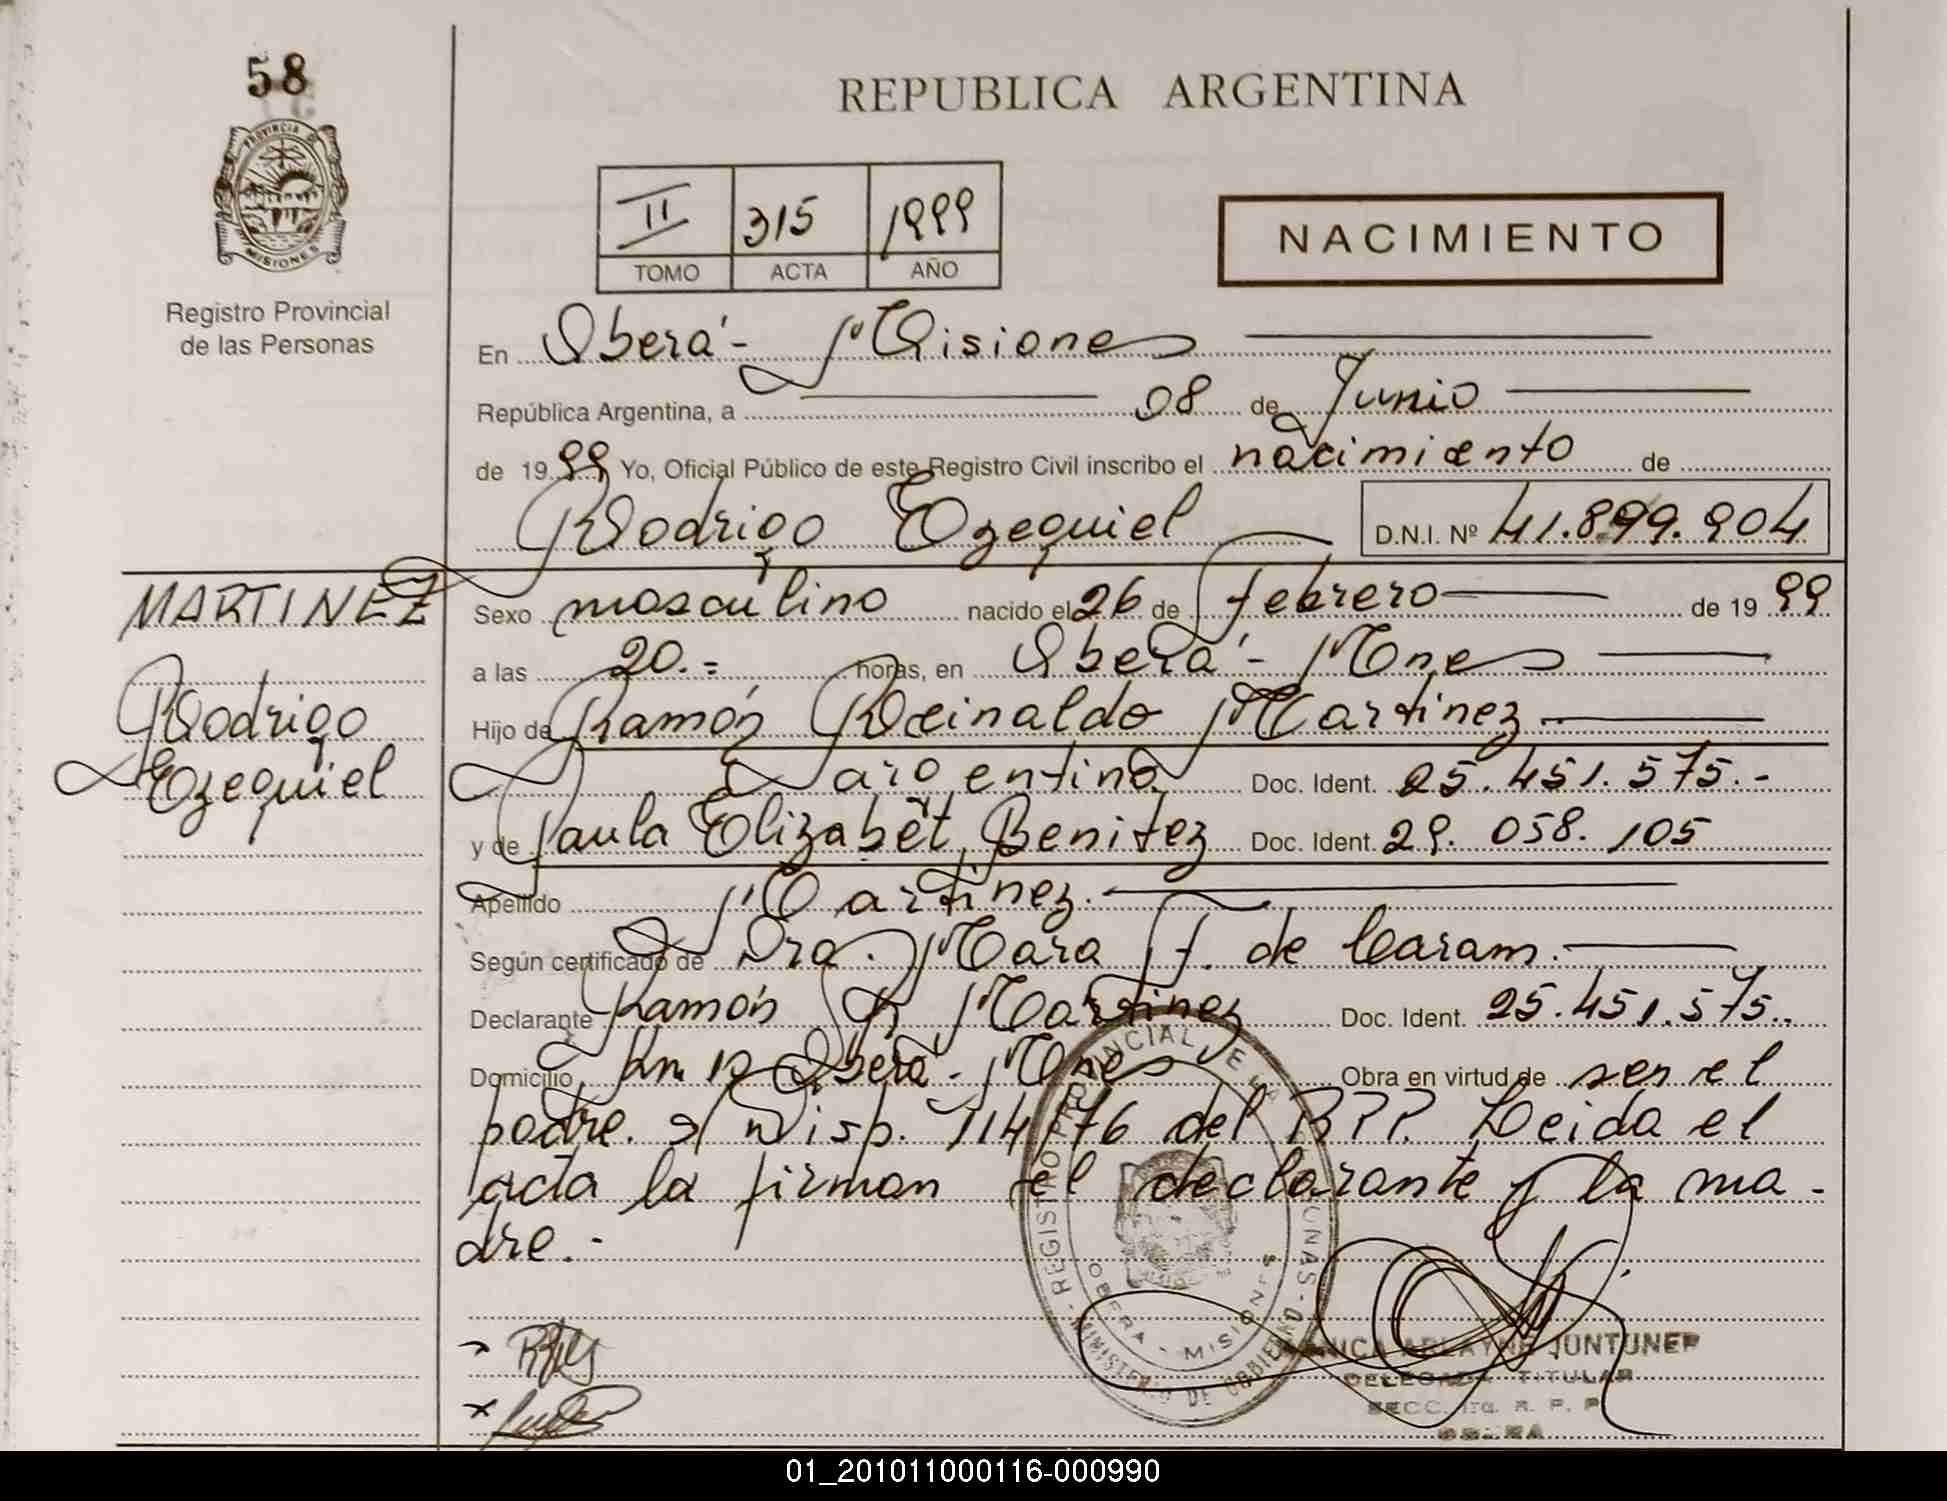 58
REPUBLICA ARGENTINA
PROVINCIA D
MISIONES
Registro Provincial
de las Personas
II 315 1999
TOMO ACTA AÑO
NACIMIENTO
En Oberá - Misiones
República Argentina, a 08 de Junio
de 1999 Yo, Oficial Público de este Registro Civil inscribo el nacimiento de
Rodrigo Ezequiel D.N.I. Nº 41.899.904
MARTINEZ
Rodrigo
Ezequiel
Sexo masculino nacido el 26 de Febrero de 1999
a las 20.= horas, en Oberá - Mnes
Hijo de Ramón Reinaldo Martinez
argentino Doc. Ident. 25.451.575.-
y de Paula Elizabet Benitez Doc. Ident. 29.058.105
Apellido Martinez.
Según certificado de Dra. Mara F. de Caram.
Declarante Ramón R Martinez Doc. Ident. 25.451.575..
Domicilio Km Oberá - Mnes Obra en virtud de ser el
padre. s/ Disp. 114/76 del R.P.P. Leida el
acta la firman el declarante y la ma-
dre.-
REGISTRO PROVINCIAL DE LA PERSONAS - MINISTERIO DE GOBIERNO
OBERA - MISIONES
ARLAYNE JUNTUNEP
DELEGADA TITULAR
SECC. 1ra. R. P. P
OBERA
01_201011000116-000990